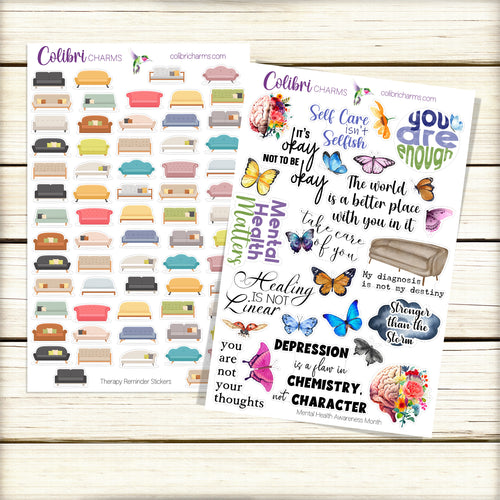 Colibri CHARMS
colibricharms.com
Therapy Reminder Stickers
Colibri CHARMS
colibricharms.com
Self Care
isn't
Selfish
you
are
enough
IT'S
okay
NOT TO BE
okay
The world
is a better place
with you in it
Mental
Health
Matters
take care
of you
My diagnosis
is not my destiny
Healing
IS NOT
Linear
Stronger
than the
Storm
you
are
not
your
thoughts
DEPRESSION
is a flaw in
CHEMISTRY,
not CHARACTER
Mental Health Awareness Month